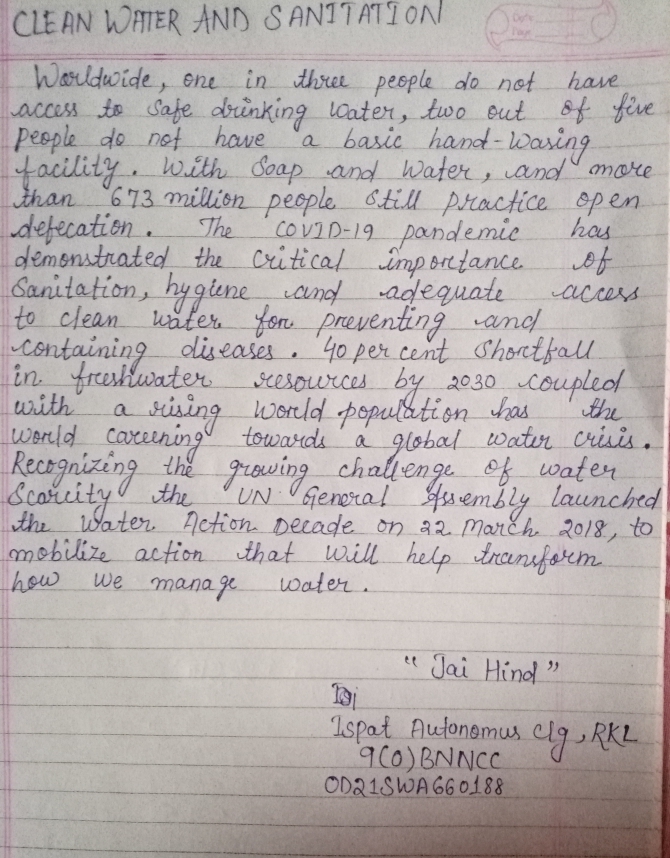 CLEAN WATER AND SANITATION
Date
Page
Worldwide, one in three people do not have
access to safe drinking water, two out of five
people do not have a basic hand-wasing
facility. With Soap and water, and more
than 673 million people still practice open
defecation. The COVID-19 pandemic has
demonstrated the critical importance of
Sanitation, hygiene and adequate access
to clean water for preventing and
containing diseases. 40 per cent Shortfall
in freshwater resources by 2030 coupled
with a rising world population has the
world careening towards a global water crisis.
Recognizing the growing challenge of water
Scarcity the UN General Assembly launched
the Water Action Decade on 22 March 2018, to
mobilize action that will help transform
how we manage water.
"Jai Hind"
Ispat Autonomus clg, RKL
9(O)BNNCC
OD21SWA660188